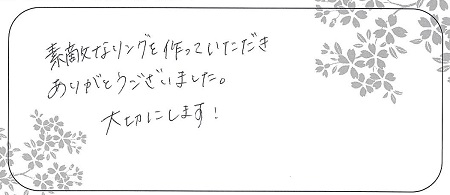 素敵なリングを作っていただき
ありがとうございました。
大切にします！